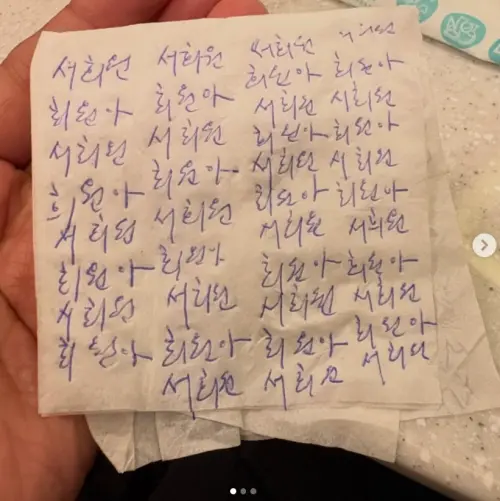 서희원 서희원 서희원 서희원
희원아 희원아
희원아 희원아 서희원 서희원
서희원 서희원 희원아 희원아
희원아 희원아 서희원 서희원
서희원 서희원 희원아 희원아
희원아 희원아 서희원 서희원
서희원 서희원 희원아 희원아
서희원 서희원
희원아 희원아 희원아 희원아
서희원 서희원 서희원